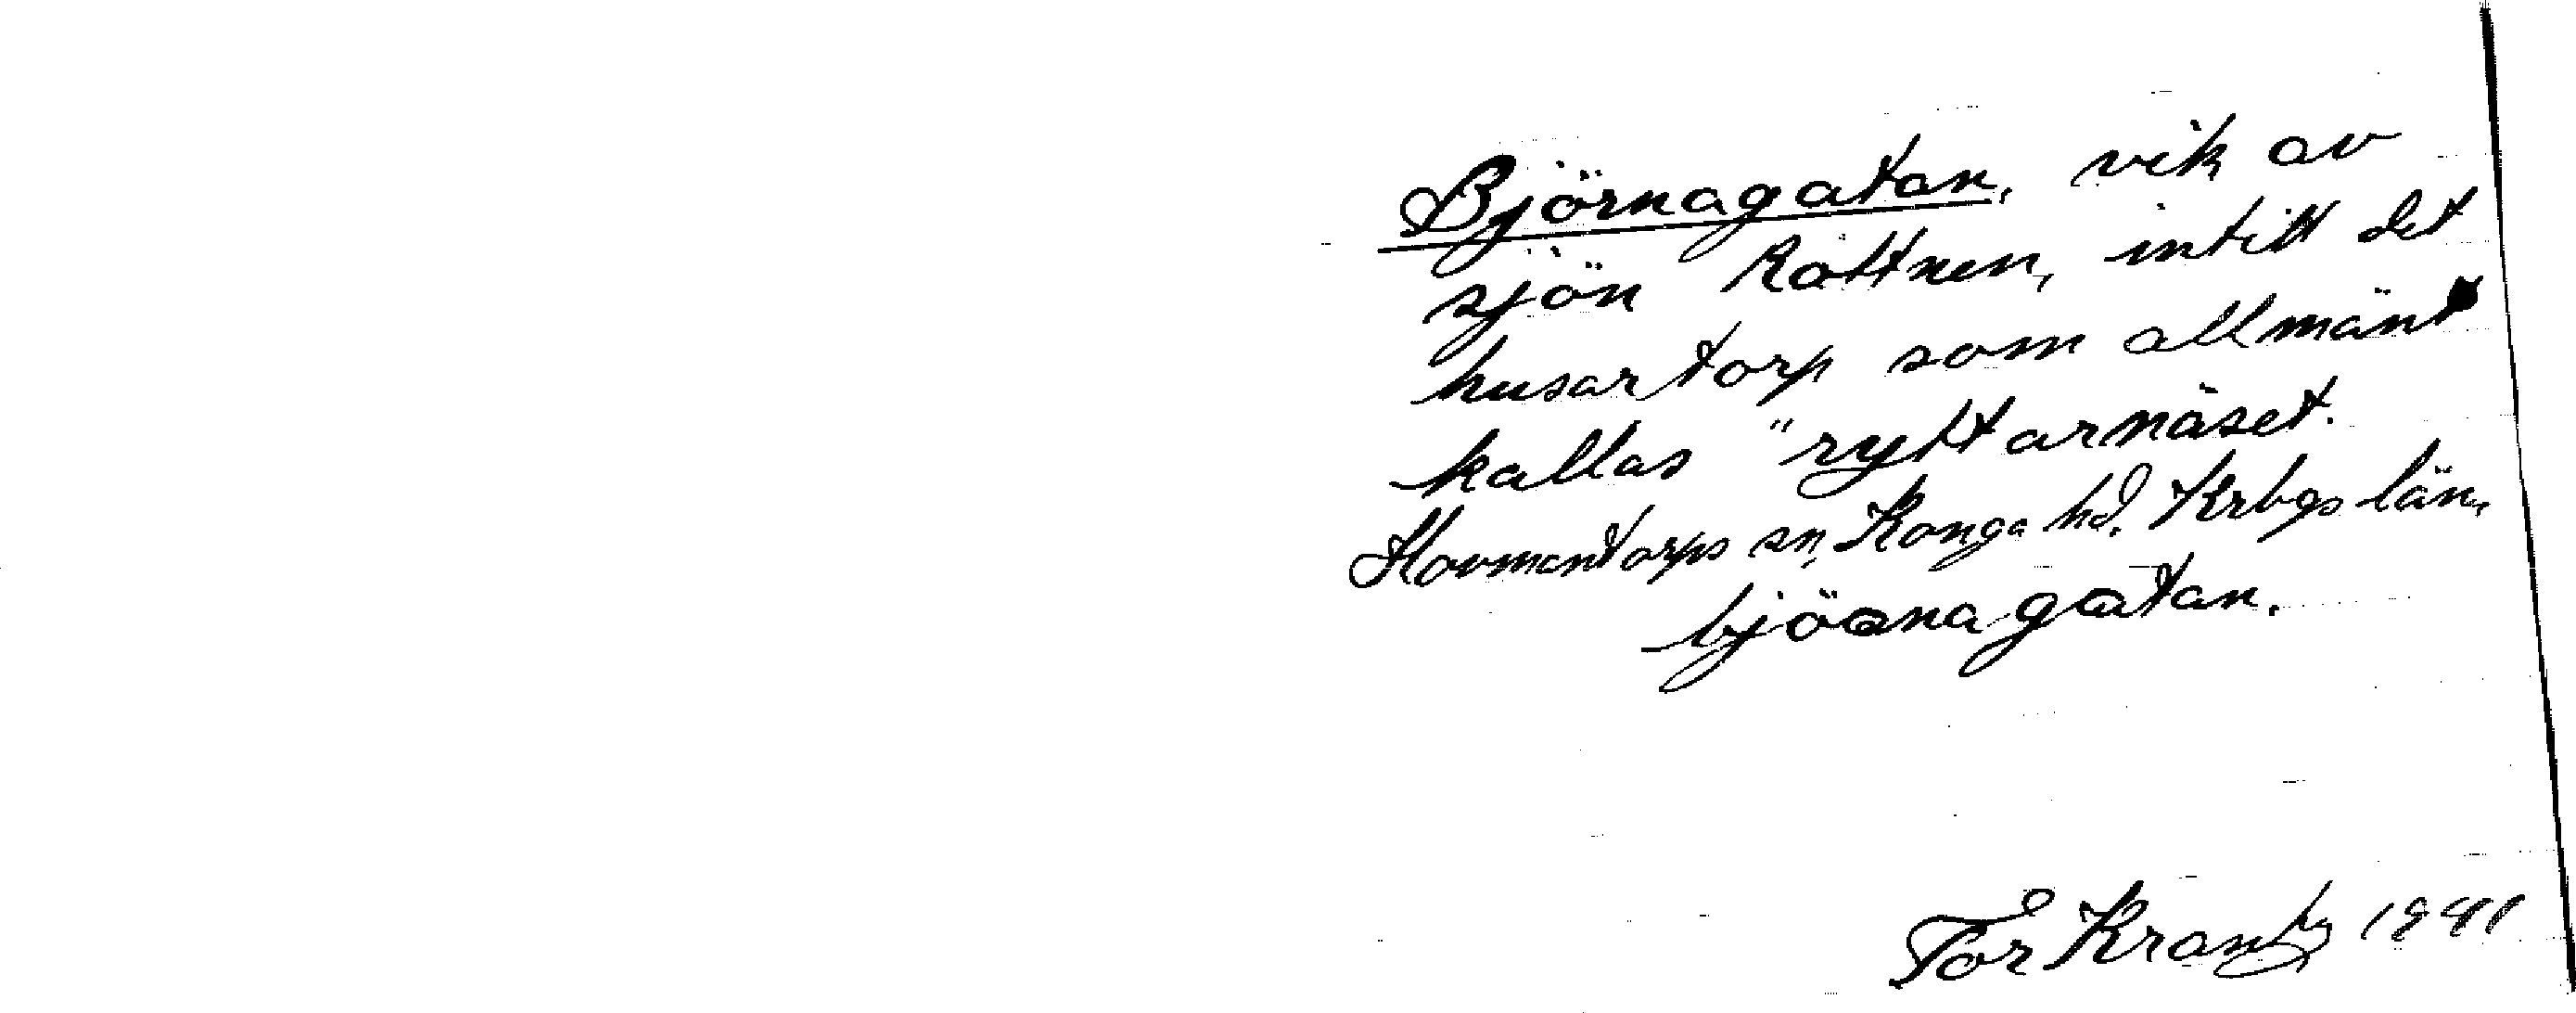 Björnagatan, vik av
sjön Rottnen, intill det
husartorp som allmänt
kallas "ryttarnäset.
Hovmantorps sn, Konga hd. Krbgs län,
bjöɷnagatan.
Tor Krantz 1941